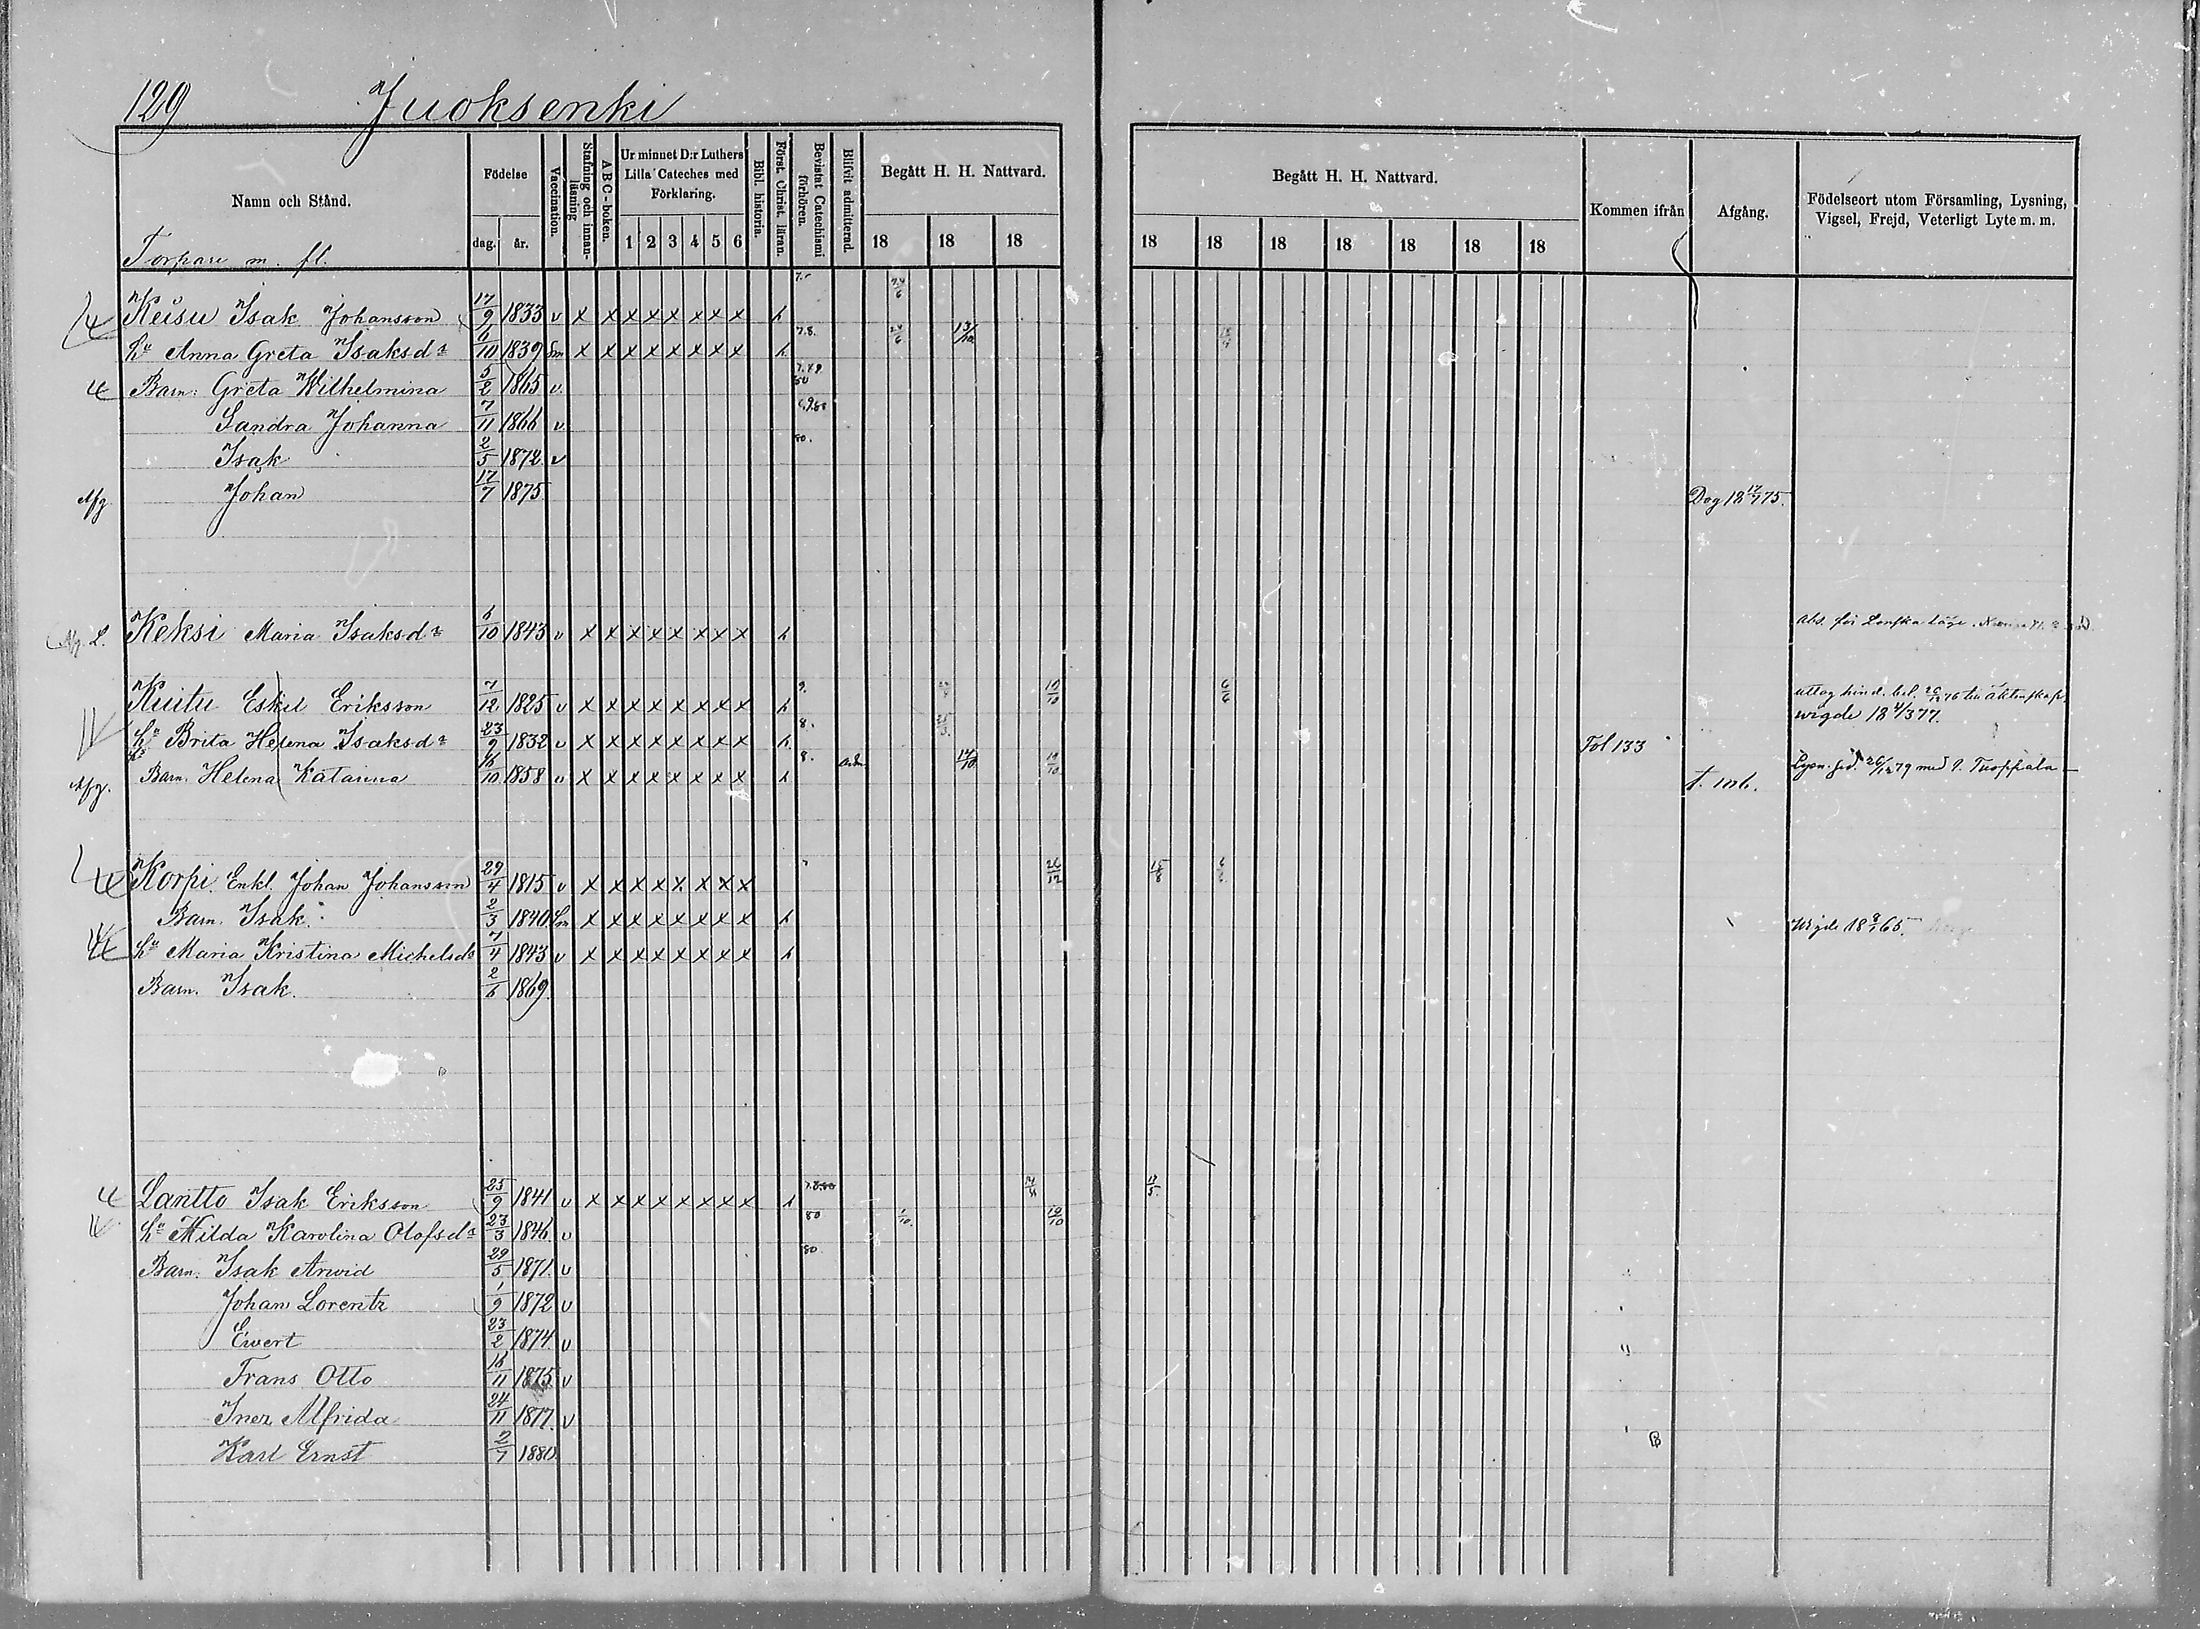 129 Juoksenki
Namn och Stånd.
Födelse
dag. år.
Vaccination.
Stafning och innanläsning
ABC-boken.
Ur minnet D:r Luthers Lilla Cateches med Förklaring.
1 2 3 4 5 6
Bibl. historia.
Först. Christ. läran.
Bevistat Catechismi förhören.
Blifvit admitterad.
Begått H. H. Nattvard.
18 18 18
Begått H. H. Nattvard.
18 18 18 18 18 18 18
Kommen ifrån
Afgång.
Födelseort utom Församling, Lysning, Vigsel, Frejd, Veterligt Lyte m. m.
Torpare m. fl.
Isak Johansson 17/9 1833 v x x x x x x x x h 24/6
hu Anna Greta Isaksdr 6/10 1839 Sm x x x x x x x x h 7.8. 24/6
Barn: Greta Wilhelmina 5/2 1865 v.
Sandra Johanna 7/11 1866 v.
Isak 2/5 1872 v 80.
Afg Johan 17/7 1875 Dog 18 17/7 75.
Keksi Maria Isaksdr 6/10 1843 v x x x x x x x x h
Kuitu Eskil Eriksson 7/12 1825 v x x x x x x x x h 9. 19/10 6/6
wigde 18 4/3 77.
hu Brita Helena Isaksdr 23/9 1832 v x x x x x x x x h 8. Fol 133
Afg. Barn. Helena Katarina 16/10 1858 v x x x x x x x x h 8. Adm. 14/10 19/10 f. 106. Lysn. 26/12 79 med
Korpi. Enkl. Johan Johansson 29/4 1815 v x x x x x x x x 26/12 15/8
Barn. Isak 2/3 1840 Sm x x x x x x x x h Wigde 18 65.
hu Maria Kristina Michelsdr 7/4 1843 v x x x x x x x x h
Barn. Isak. 2/6 1869.
Lantto Isak Eriksson 25/9 1841 v x x x x x x x x h
hu Hilda Karolina Olofsdr 23/3 1846. v 80 1/10. 19/10
Barn. Isak Arwid 29/5 1871. v 80.
Johan Lorentz 1/9 1872 v
Ewert 23/2 1874. v
Frans Otto 16/11 1875 v
Inez Alfrida 24/11 1877. v
Karl Ernst 2/7 1880